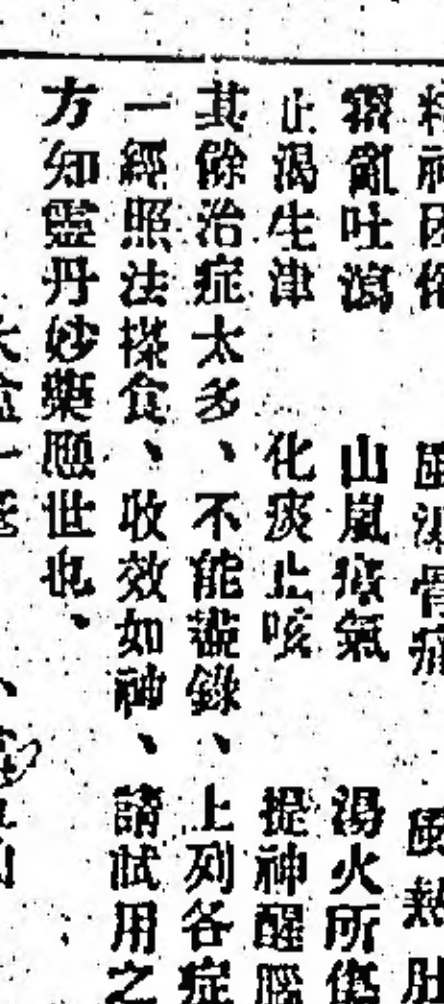 精神困倦 風濕骨痛 風熱肚
霍亂吐瀉 山嵐瘴氣 湯火所傷
止渴生津 化痰止咳 提神醒腦
其餘治症太多、不能盡錄、上列各症
一經照法搽食、收效如神、請試用之
方知靈丹妙藥應世也、
大盒一毫